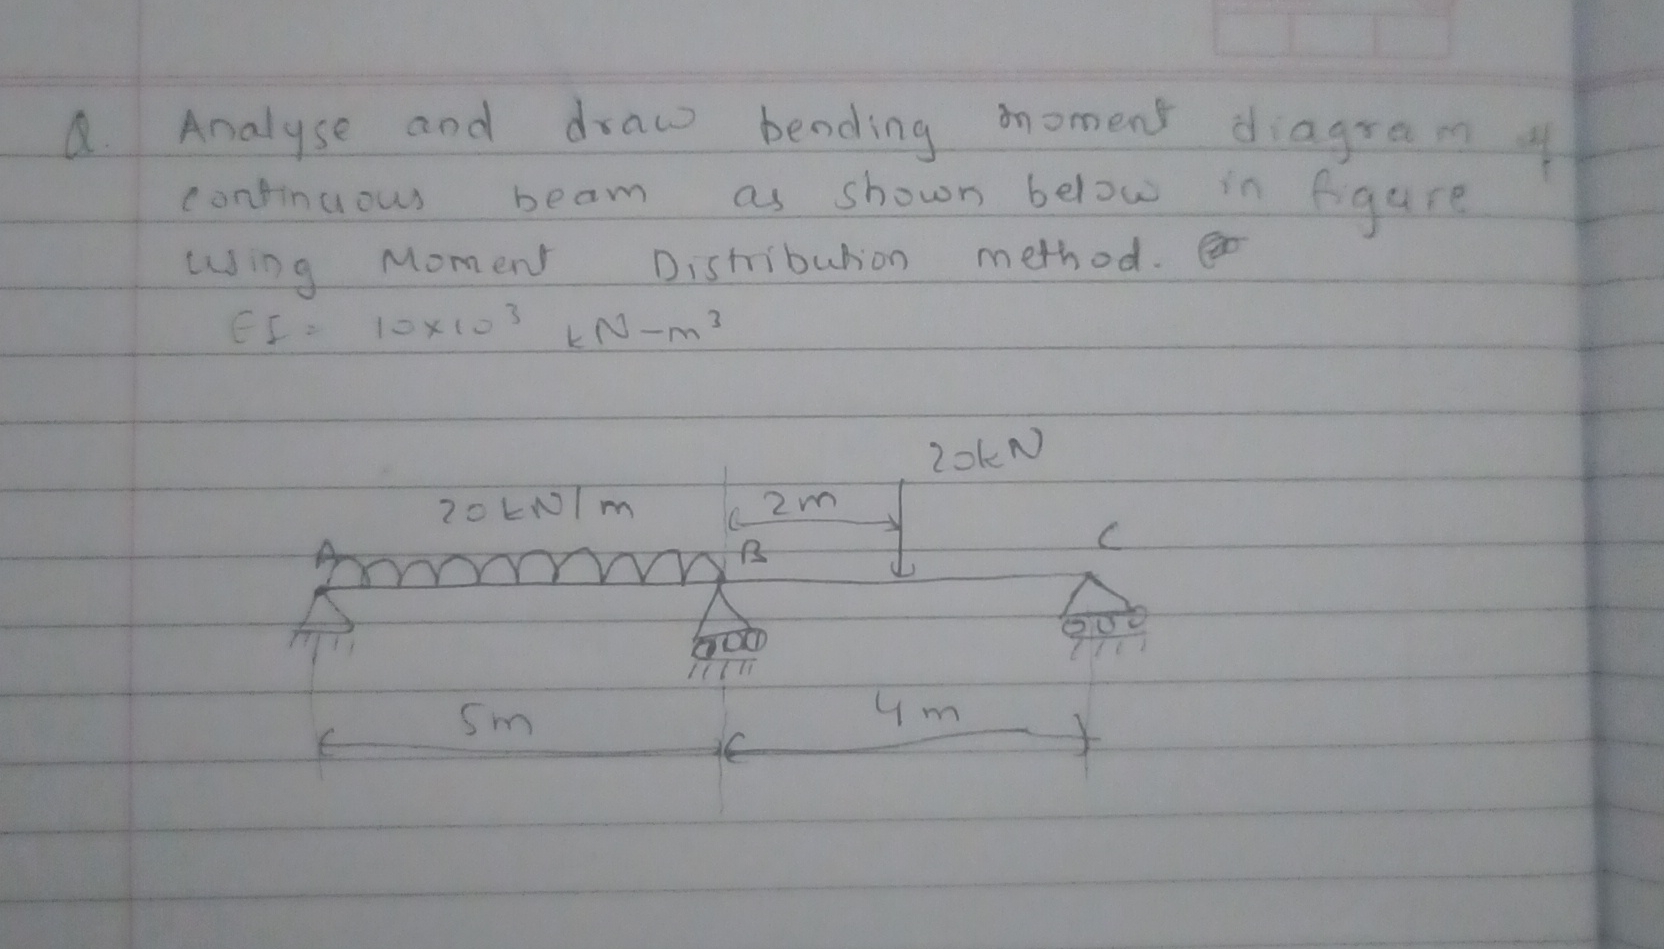 Q. Analyse and draw bending moment diagram of
continuous beam as shown below in figure
using Moment Distribution method.
EI = 10×10³ kN-m³
20kN
20 kN/m
2m
A
B
C
5m
4m